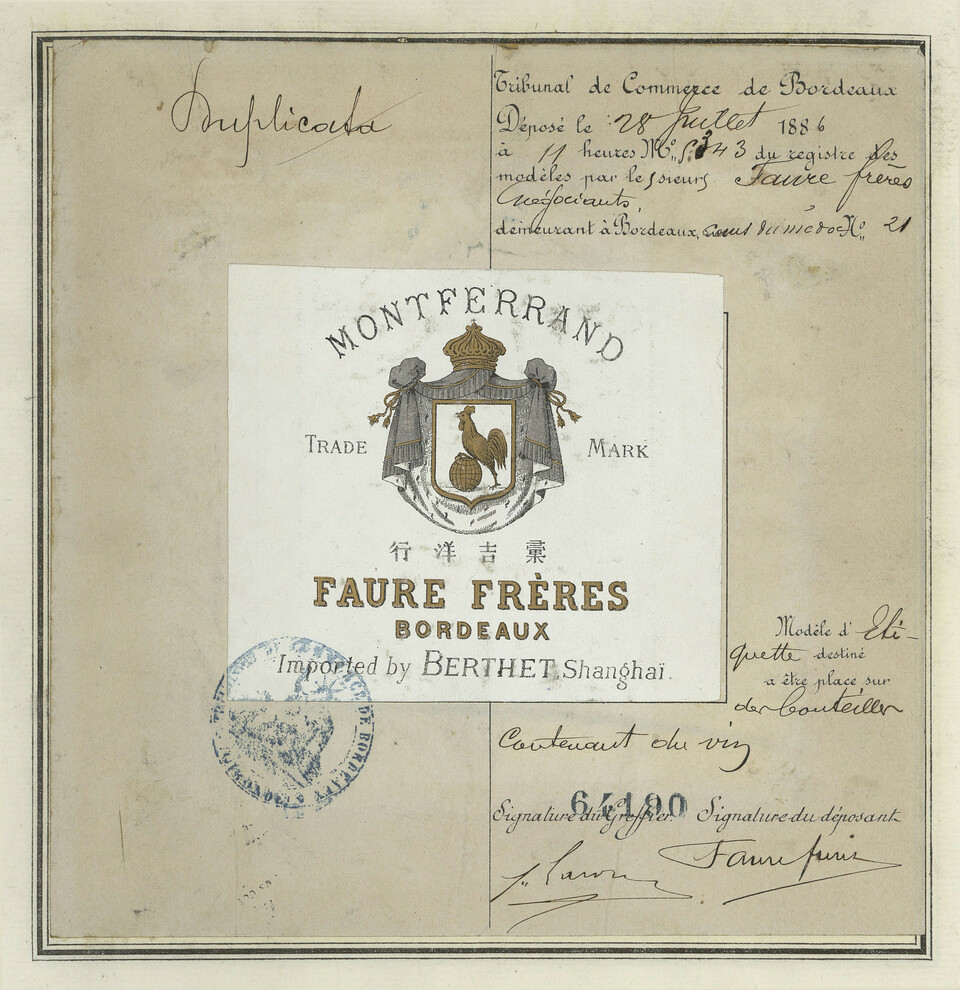 Duplicata
Tribunal de Commerce de Bordeaux
Déposé le 28 Juillet 1886
à 11 heures Nº 5343 du registre des
modèles par les sieurs Faure frères
négociants,
demeurant à Bordeaux, cours du médoc Nº 21
MONTFERRAND
TRADE MARK
行洋吉彙
FAURE FRÈRES
BORDEAUX
Imported by BERTHET, Shanghaï.
Modèle d'Eti-
quette destiné
a être place sur
des bouteilles
Contenant du vin
64190
Signature du Greffier. Signature du déposant
Faure frères
DE BORDEAUX